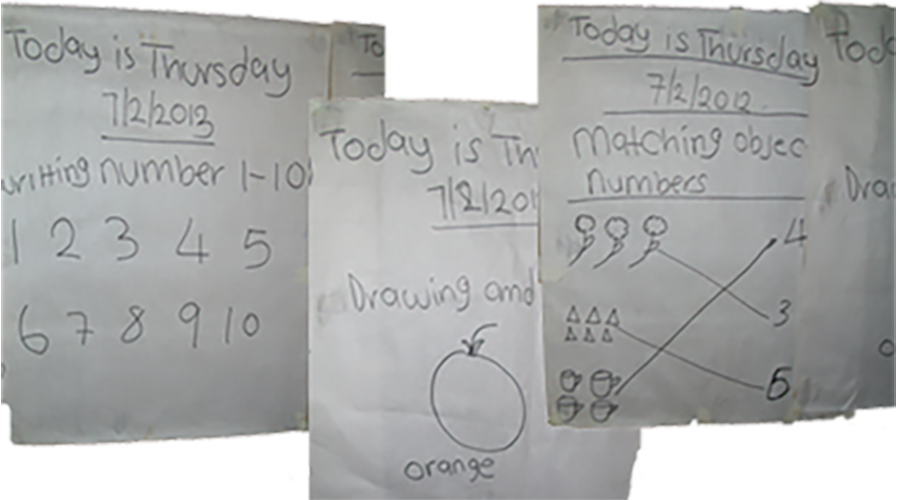 Today is Thursday
7/2/2013
writting number 1-10
1 2 3 4 5
6 7 8 9 10
To
Today is Th
7/2/201
Drawing and
orange
Today is Thursday
7/2/2012
Matching objec
numbers
4
3
6
Toda
Draw